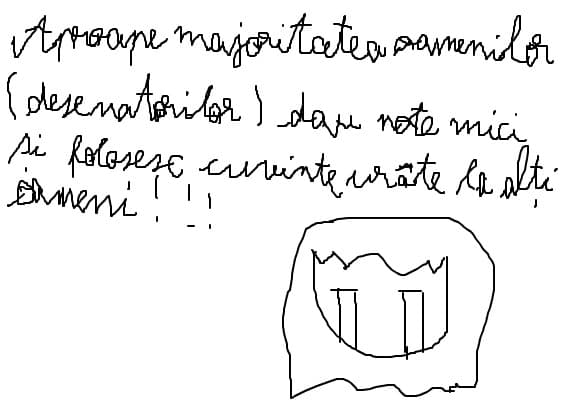 Aproape majoritatea oamenilor
(desenatorilor) dau note mici
si folosesc cuvinte urâte la alți
oameni!!!